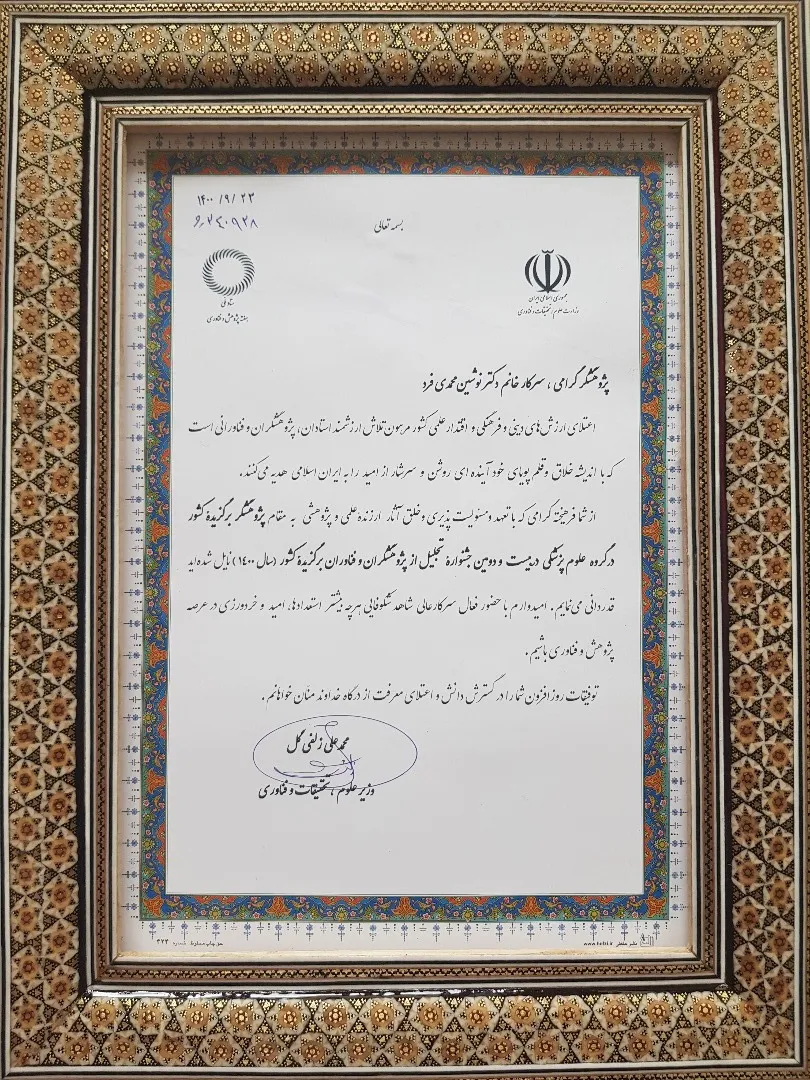 ۱۴۰۰ /۹/ ۲۳
بسمه تعالی
جمهوری اسلامی ایران
وزارت علوم، تحقیقات و فناوری
ستاد ملی
هفته پژوهش و فناوری
پژوهشگر گرامی ، سرکار خانم دکتر نوشین محمدی فرد
اعتلای ارزش های دینی و فرهنگی و اقتدار علمی کشور مرهون تلاش ارزشمند استادان، پژوهشگران و فناورانی است
که با اندیشه خلاق و قلم پویای خود آینده ای روشن و سرشار از امید را به ایران اسلامی هدیه می کنند.
از شما فرهیخته گرامی که با تعهد و مسئولیت پذیری و خلق آثار ارزنده علمی و پژوهشی به مقام پژوهشگر برگزیدهٔ کشور
در گروه علوم پزشکی در بیست و دومین جشنوارهٔ تجلیل از پژوهشگران و فناوران برگزیدهٔ کشور (سال ۱۴۰۰) نایل شده اید
قدردانی می نمایم . امیدوارم با حضور فعال سرکارعالی شاهد شکوفایی هرچه بیشتر استعدادها، امید و خردورزی در عرصه
پژوهش و فناوری باشیم .
توفیقات روزافزون شما را در گسترش دانش و اعتلای معرفت از درگاه خداوند منان خواهانم .
محمد علی زلفی گل
وزیر علوم ، تحقیقات و فناوری